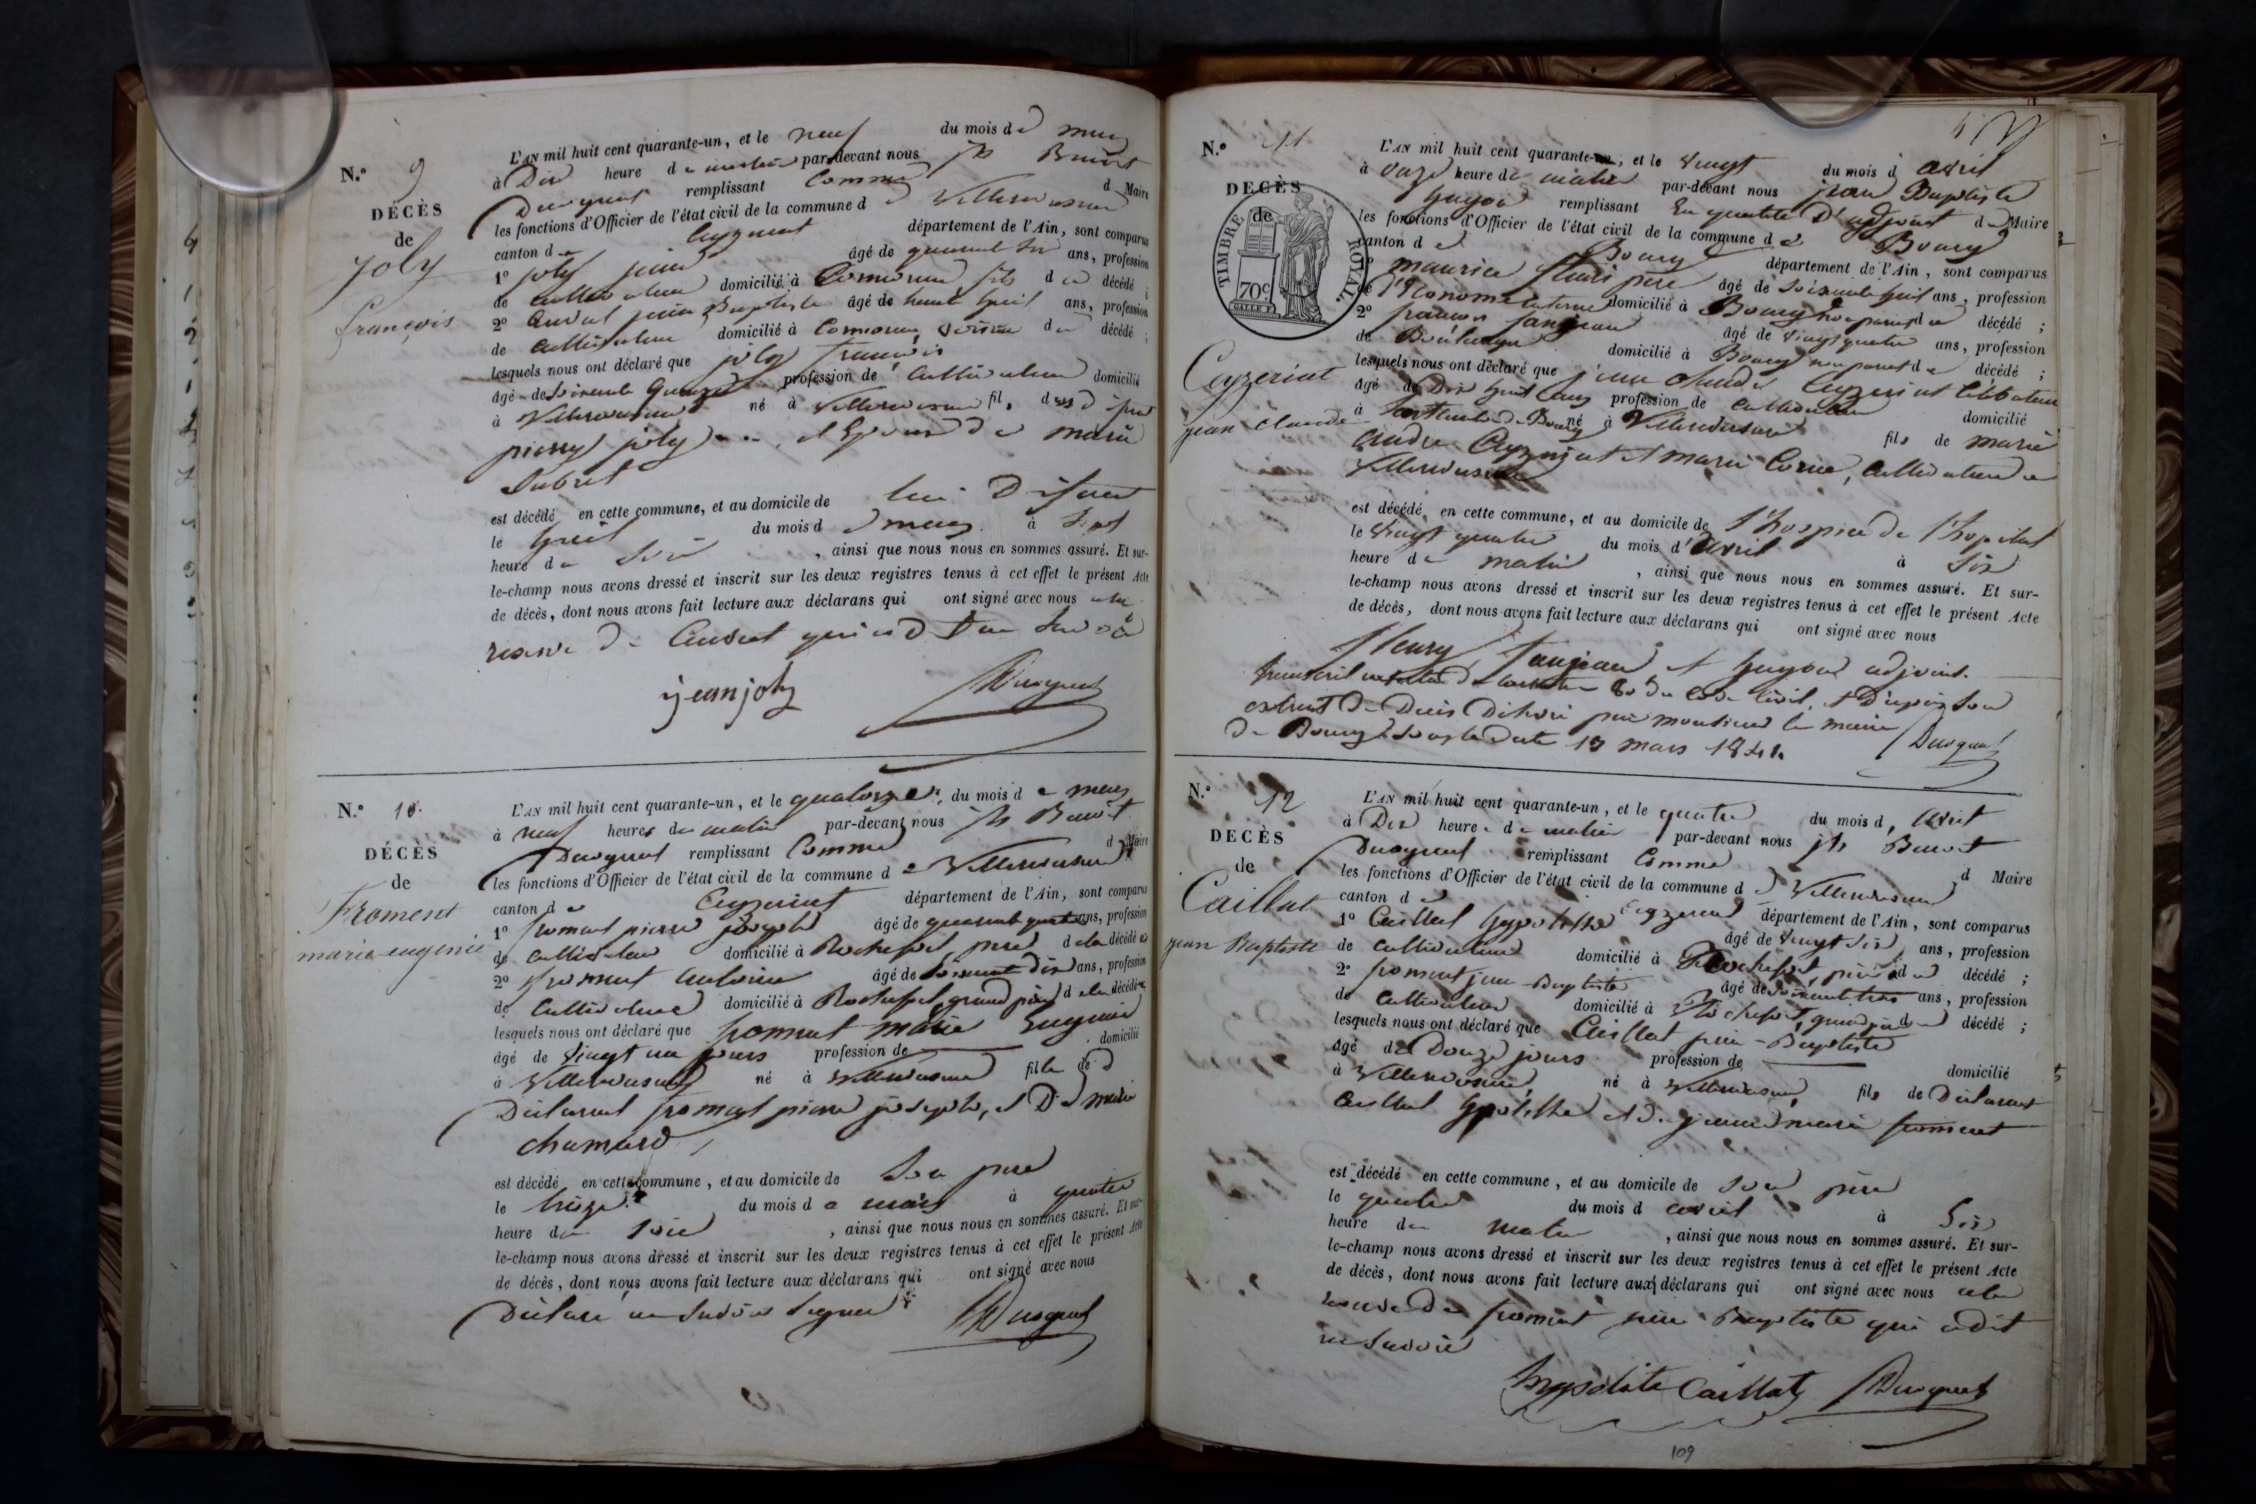 N.º 9
DÉCÈS
de
joly
françois
L'AN mil huit cent quarante-un, et le neuf du mois de mars
à Dix heure de matin par-devant nous jh Benoit
Ducquet remplissant Comme d Maire
les fonctions d'Officier de l'état civil de la commune de Villereversure
canton de Ceyzeriat département de l'Ain, sont comparus
1º joly jean âgé de ans, profession
de cultivateur domicilié à fils du décédé ;
2º jean Baptiste âgé de trente huit ans, profession
de cultivateur domicilié à voisin du décédé ;
lesquels nous ont déclaré que joly francois
âgé de soixante quinze profession de cultivateur domicilié
à Villereversure né à Villereversure fils de
pierre joly et Epoux de marie
Subret
est décédé en cette commune, et au domicile de lui Difunt
le huit du mois de mars à Sept
heure du Soir , ainsi que nous nous en sommes assuré. Et sur-
le-champ nous avons dressé et inscrit sur les deux registres tenus à cet effet le présent Acte
de décès, dont nous avons fait lecture aux déclarans qui ont signé avec nous a la
reserve de qui a dit ne Savoir
jean joly
N.º 10.
DÉCÈS
de
Froment
marie eugenie
L'AN mil huit cent quarante-un, et le quatorze, du mois de mars
à neuf heures du matin par-devant nous jh Benoit
remplissant Comme d Maire
les fonctions d'Officier de l'état civil de la commune de Villereversure
canton de Ceyzeriat département de l'Ain, sont comparus
1º froment pierre joseph âgé de quarante ans, profession
de cultivateur domicilié à Rochefort pere de la décédée
2º froment antoine âgé de soixante dix ans, profession
de cultivateur domicilié à Rochefort grand père de la décédée
lesquels nous ont déclaré que froment marie Eugenie
âgé de vingt un jours profession de domicilié
à Villereversure né à Villereversure fille de
Déclarant froment pierre joseph, et De marie
chamard
est décédé en cette commune, et au domicile de Son pere
le treize du mois de mars à quatre
heure du soir , ainsi que nous nous en sommes assuré. Et sur-
le-champ nous avons dressé et inscrit sur les deux registres tenus à cet effet le présent Acte
de décès, dont nous avons fait lecture aux déclarans qui ont signé avec nous
Déclaré ne Savoir Signer
N.º 11
DÉCÈS
de
TIMBRE ROYAL.
70c
Ceyzeriat
jean Claude
L'AN mil huit cent quarante-un, et le vingt du mois d avril
à onze heure de matin par-devant nous jean Baptiste
guyou remplissant En qualité D'adjoint de Maire
les fonctions d'Officier de l'état civil de la commune de Bourg
canton de Bourg département de l'Ain, sont comparus
1º maurice fleuri pere âgé de soixante huit ans, profession
de l'économe interne domicilié à Bourg non parent du décédé ;
2º francois âgé de vingt quatre ans, profession
de Boulanger domicilié à Bourg non parent du décédé ;
lesquels nous ont déclaré que jean claude Ceyzeriat Célibataire
âgé de Dix huit ans profession de cultivateur domicilié
à de Bourg né à Villereversure fils de marie
andre Ceyzeriat et marie Corne, cultivateur de
Villereversure
est décédé, en cette commune, et au domicile de l'hospice de l'hopital
le vingt quatre du mois d'avril à Six
heure de matin , ainsi que nous nous en sommes assuré. Et sur-
le-champ nous avons dressé et inscrit sur les deux registres tenus à cet effet le présent Acte
de décès, dont nous avons fait lecture aux déclarans qui ont signé avec nous
fleury et guyou adjoint.
80 du code civil, et D'après son
extrait De Décès Délivré par monsieur le maire
De Bourg sous la date 19 mars 1841.
N.º 12
DÉCÈS
de
Caillat
jean Baptiste
L'AN mil huit cent quarante-un, et le quatre du mois d, avril
à Dix heure de matin par-devant nous jh Benoit
remplissant Comme d Maire
les fonctions d'Officier de l'état civil de la commune de Villereversure
canton de Ceyzeriat département de l'Ain, sont comparus
1º Caillat hypolithe âgé de vingt six ans, profession
de cultivateur domicilié à Rochefort, père du décédé ;
2º froment jean-Baptiste âgé de soixante trois ans, profession
de cultivateur domicilié à Rochefort, grand père du décédé ;
lesquels nous ont déclaré que Caillat jean-Baptiste
âgé de Douze jours profession de domicilié
à Villereversure né à Villereversure, fils de Déclarant
Caillat hypolithe et de jeanne marie froment
est décédé en cette commune, et au domicile de Son père
le quatre du mois d avril à Six
heure du matin , ainsi que nous nous en sommes assuré. Et sur-
le-champ nous avons dressé et inscrit sur les deux registres tenus à cet effet le présent Acte
de décès, dont nous avons fait lecture aux déclarans qui ont signé avec nous a la
reserve De froment jean Baptiste qui a dit
ne Savoir
hypolite Caillat
109